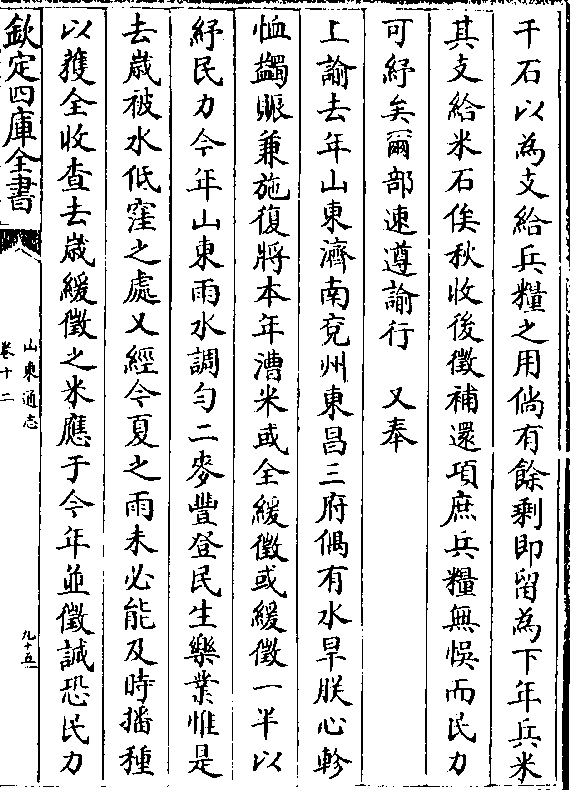 千石以為支給兵糧之用倘有餘剩即留為下年兵米
其支給米石俟秋收後徵補還項庶兵糧無悮而民力
可紓矣爾部速遵諭行　又奉
上諭去年山東濟南兖州東昌三府偶有水旱朕心軫
恤蠲賑兼施復將本年漕米或全緩徵或緩徵一半以
紓民力今年山東雨水調勻二麥豐登民生樂業惟是
去嵗被水低窪之處乂經今夏之雨未必能及時播種
以獲全收查去嵗緩徵之米應于今年並徵誠恐民力
欽定四庫全書
山東通志
卷十二
九十五